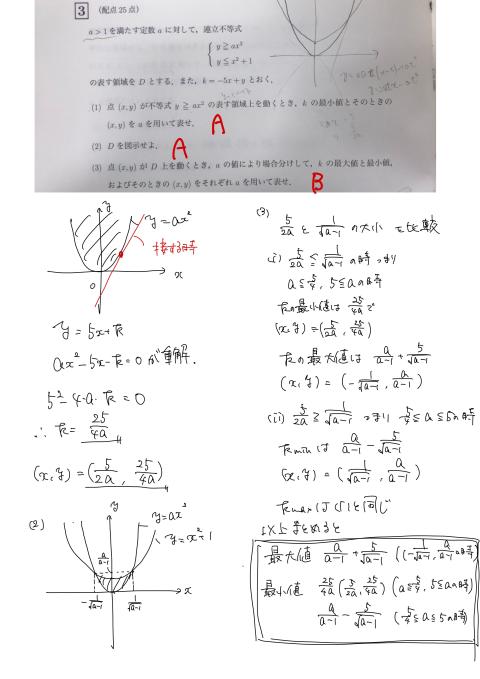 3 (配点25点)
a>1を満たす定数aに対して, 連立不等式
{ y≧ax²
y≦x²+1
の表す領域をDとする. また, k=-5x+yとおく.
(1) 点(x,y)が不等式 y≧ax² の表す領域上を動くとき, kの最小値とそのときの
(x,y)をaを用いて表せ. A
(2) Dを図示せよ. A
(3) 点(x,y)がD上を動くとき, aの値により場合分けして, kの最大値と最小値,
およびそのときの(x,y)をそれぞれaを用いて表せ. B
y
y=ax²
接する時
x
0
y=5x+k
ax²-5x-k=0が重解.
5²-4·a·k=0
∴ k= 25/4a
(x,y)=(5/2a, 25/4a)
(2)
y
y=ax²
y=x²+1
a/a-1
x
-1/√a-1 1/√a-1
(3)
5/2a と 1/√a-1 の大小を比較
(i) 5/2a ≦ 1/√a-1 の時つまり
a≦5/4, 5≦aの時
kの最小値は 25/4a で
(x,y)=(5/2a, 25/4a)
kの最大値は a/a-1 + 5/√a-1
(x,y)=(-1/√a-1, a/a-1)
(ii) 5/2a ≧ 1/√a-1 つまり 5/4≦a≦5の時
kminは a/a-1 - 5/√a-1
(x,y)=(1/√a-1, a/a-1)
kmaxは(i)と同じ
以上まとめると
最大値 a/a-1 + 5/√a-1 ((-1/√a-1, a/a-1)の時)
最小値 25/4a (5/2a, 25/4a) (a≦5/4, 5≦aの時)
a/a-1 - 5/√a-1 (5/4≦a≦5の時)